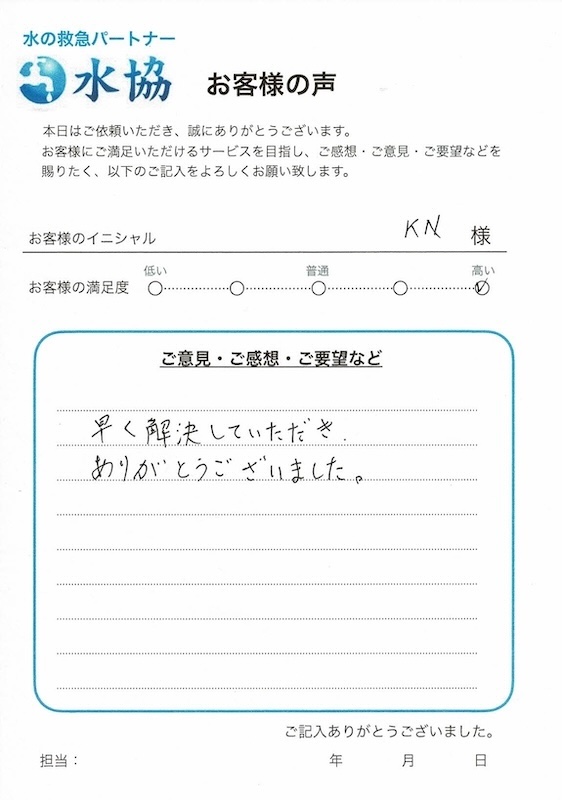 水の救急パートナー
水協 お客様の声
本日はご依頼いただき、誠にありがとうございます。
お客様にご満足いただけるサービスを目指し、ご感想・ご意見・ご要望などを
賜りたく、以下のご記入をよろしくお願い致します。
お客様のイニシャル KN 様
低い 普通 高い
お客様の満足度
ご意見・ご感想・ご要望など
早く解決していただき、
ありがとうございました。
ご記入ありがとうございました。
担当： 年 月 日